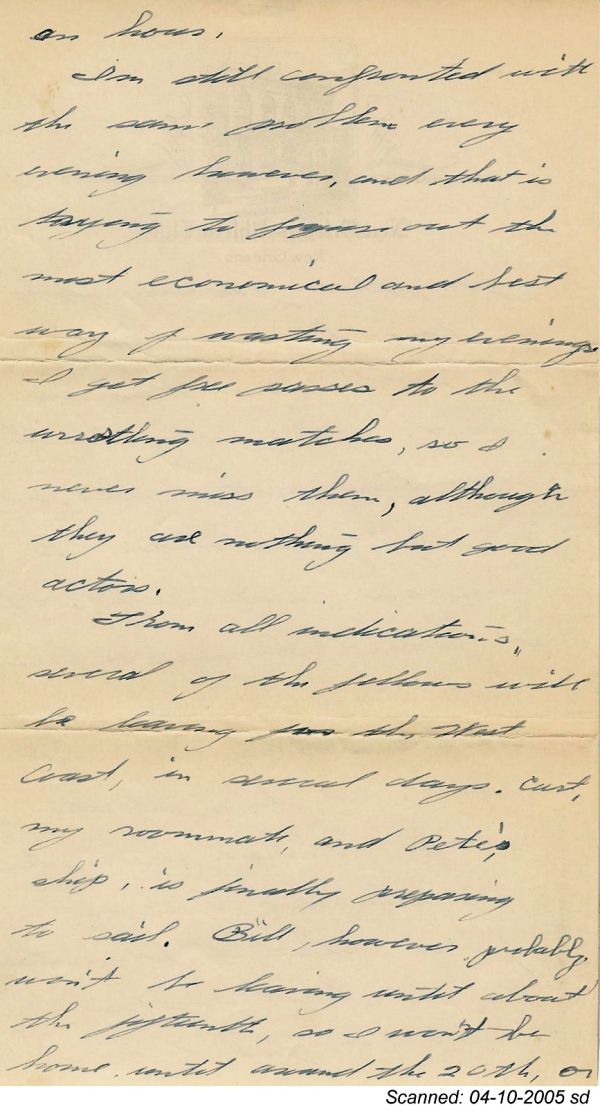 an hour.
I'm still confronted with
the same problem every
evening however, and that is
trying to figure out the
most economical and best
way of wasting my evenings.
I get free passes to the
wrestling matches, so I
never miss them, although
they are nothing but good
actors.
From all indications,
several of the fellows will
be leaving for the West
Coast, in several days. Curt,
my roommate, and Pete's,
ship, is finally preparing
to sail. Bill, however, probably
won't be leaving until about
the fifteenth, so I won't be
home until around the 20th, or
New Orleans
Scanned: 04-10-2005 sd